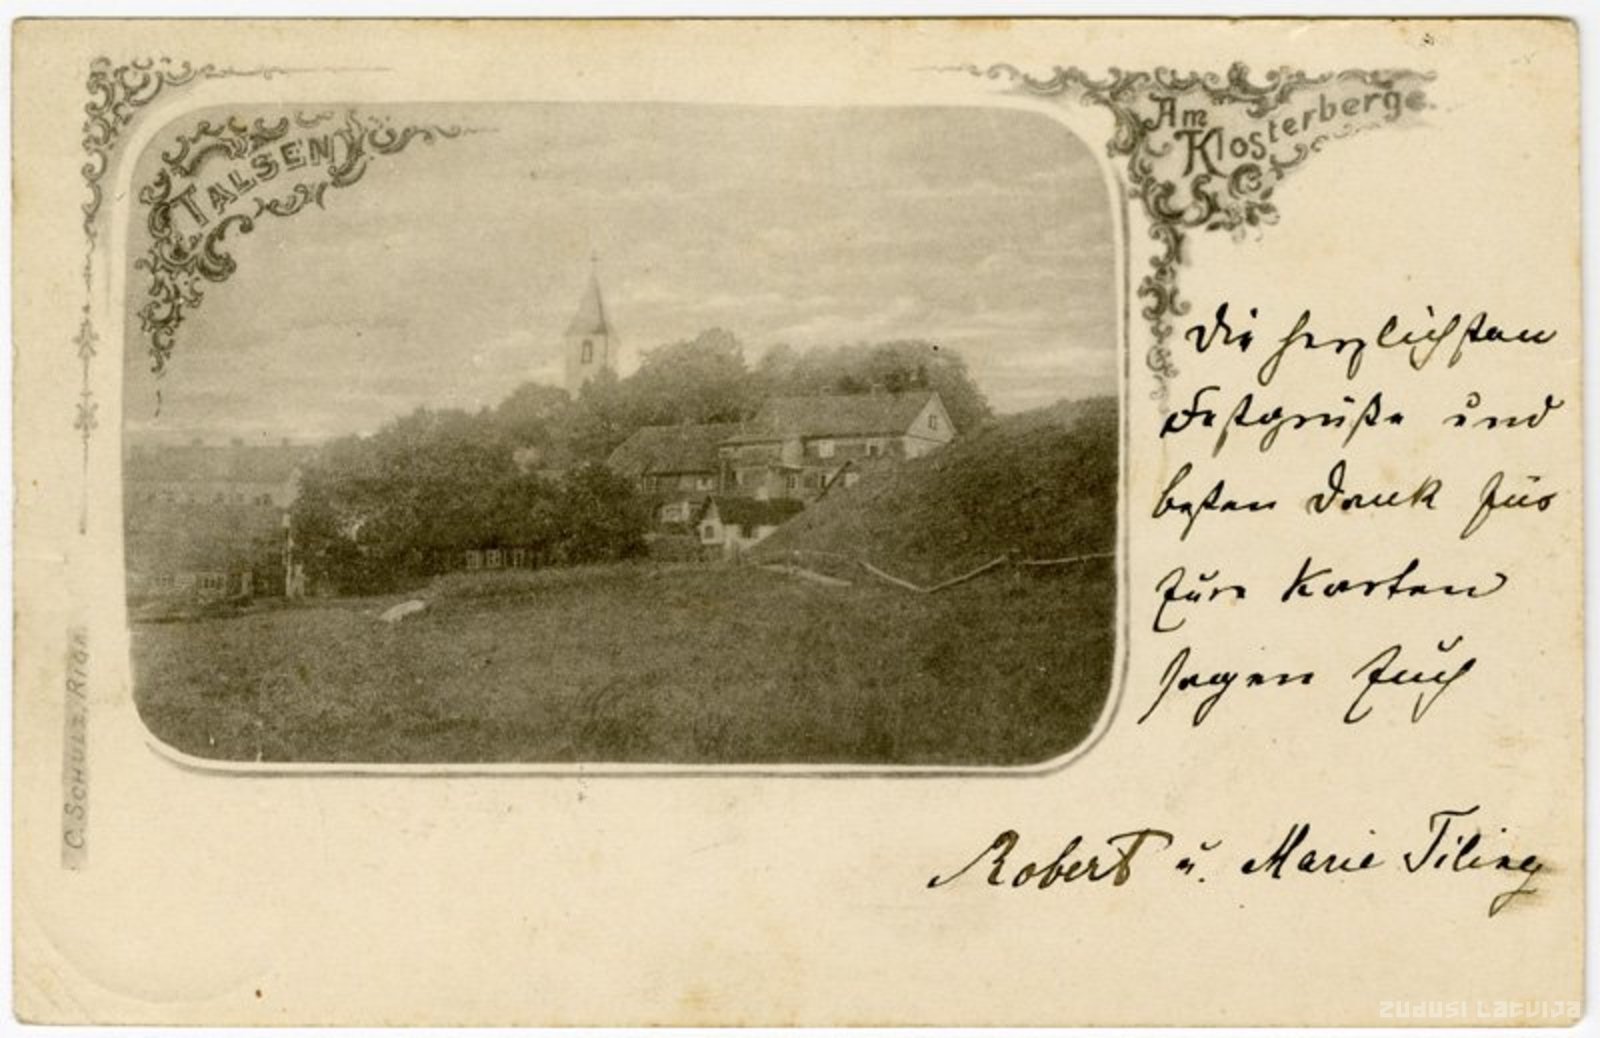 TALSEN
Am
Klosterberge.
Die herzlichsten
Festgrüße und
besten Dank für
Eure Karten
sagen Euch
Robert u. Marie Tiling
C. SCHULZ, RIGA.
ZUDUSI LATVIJA